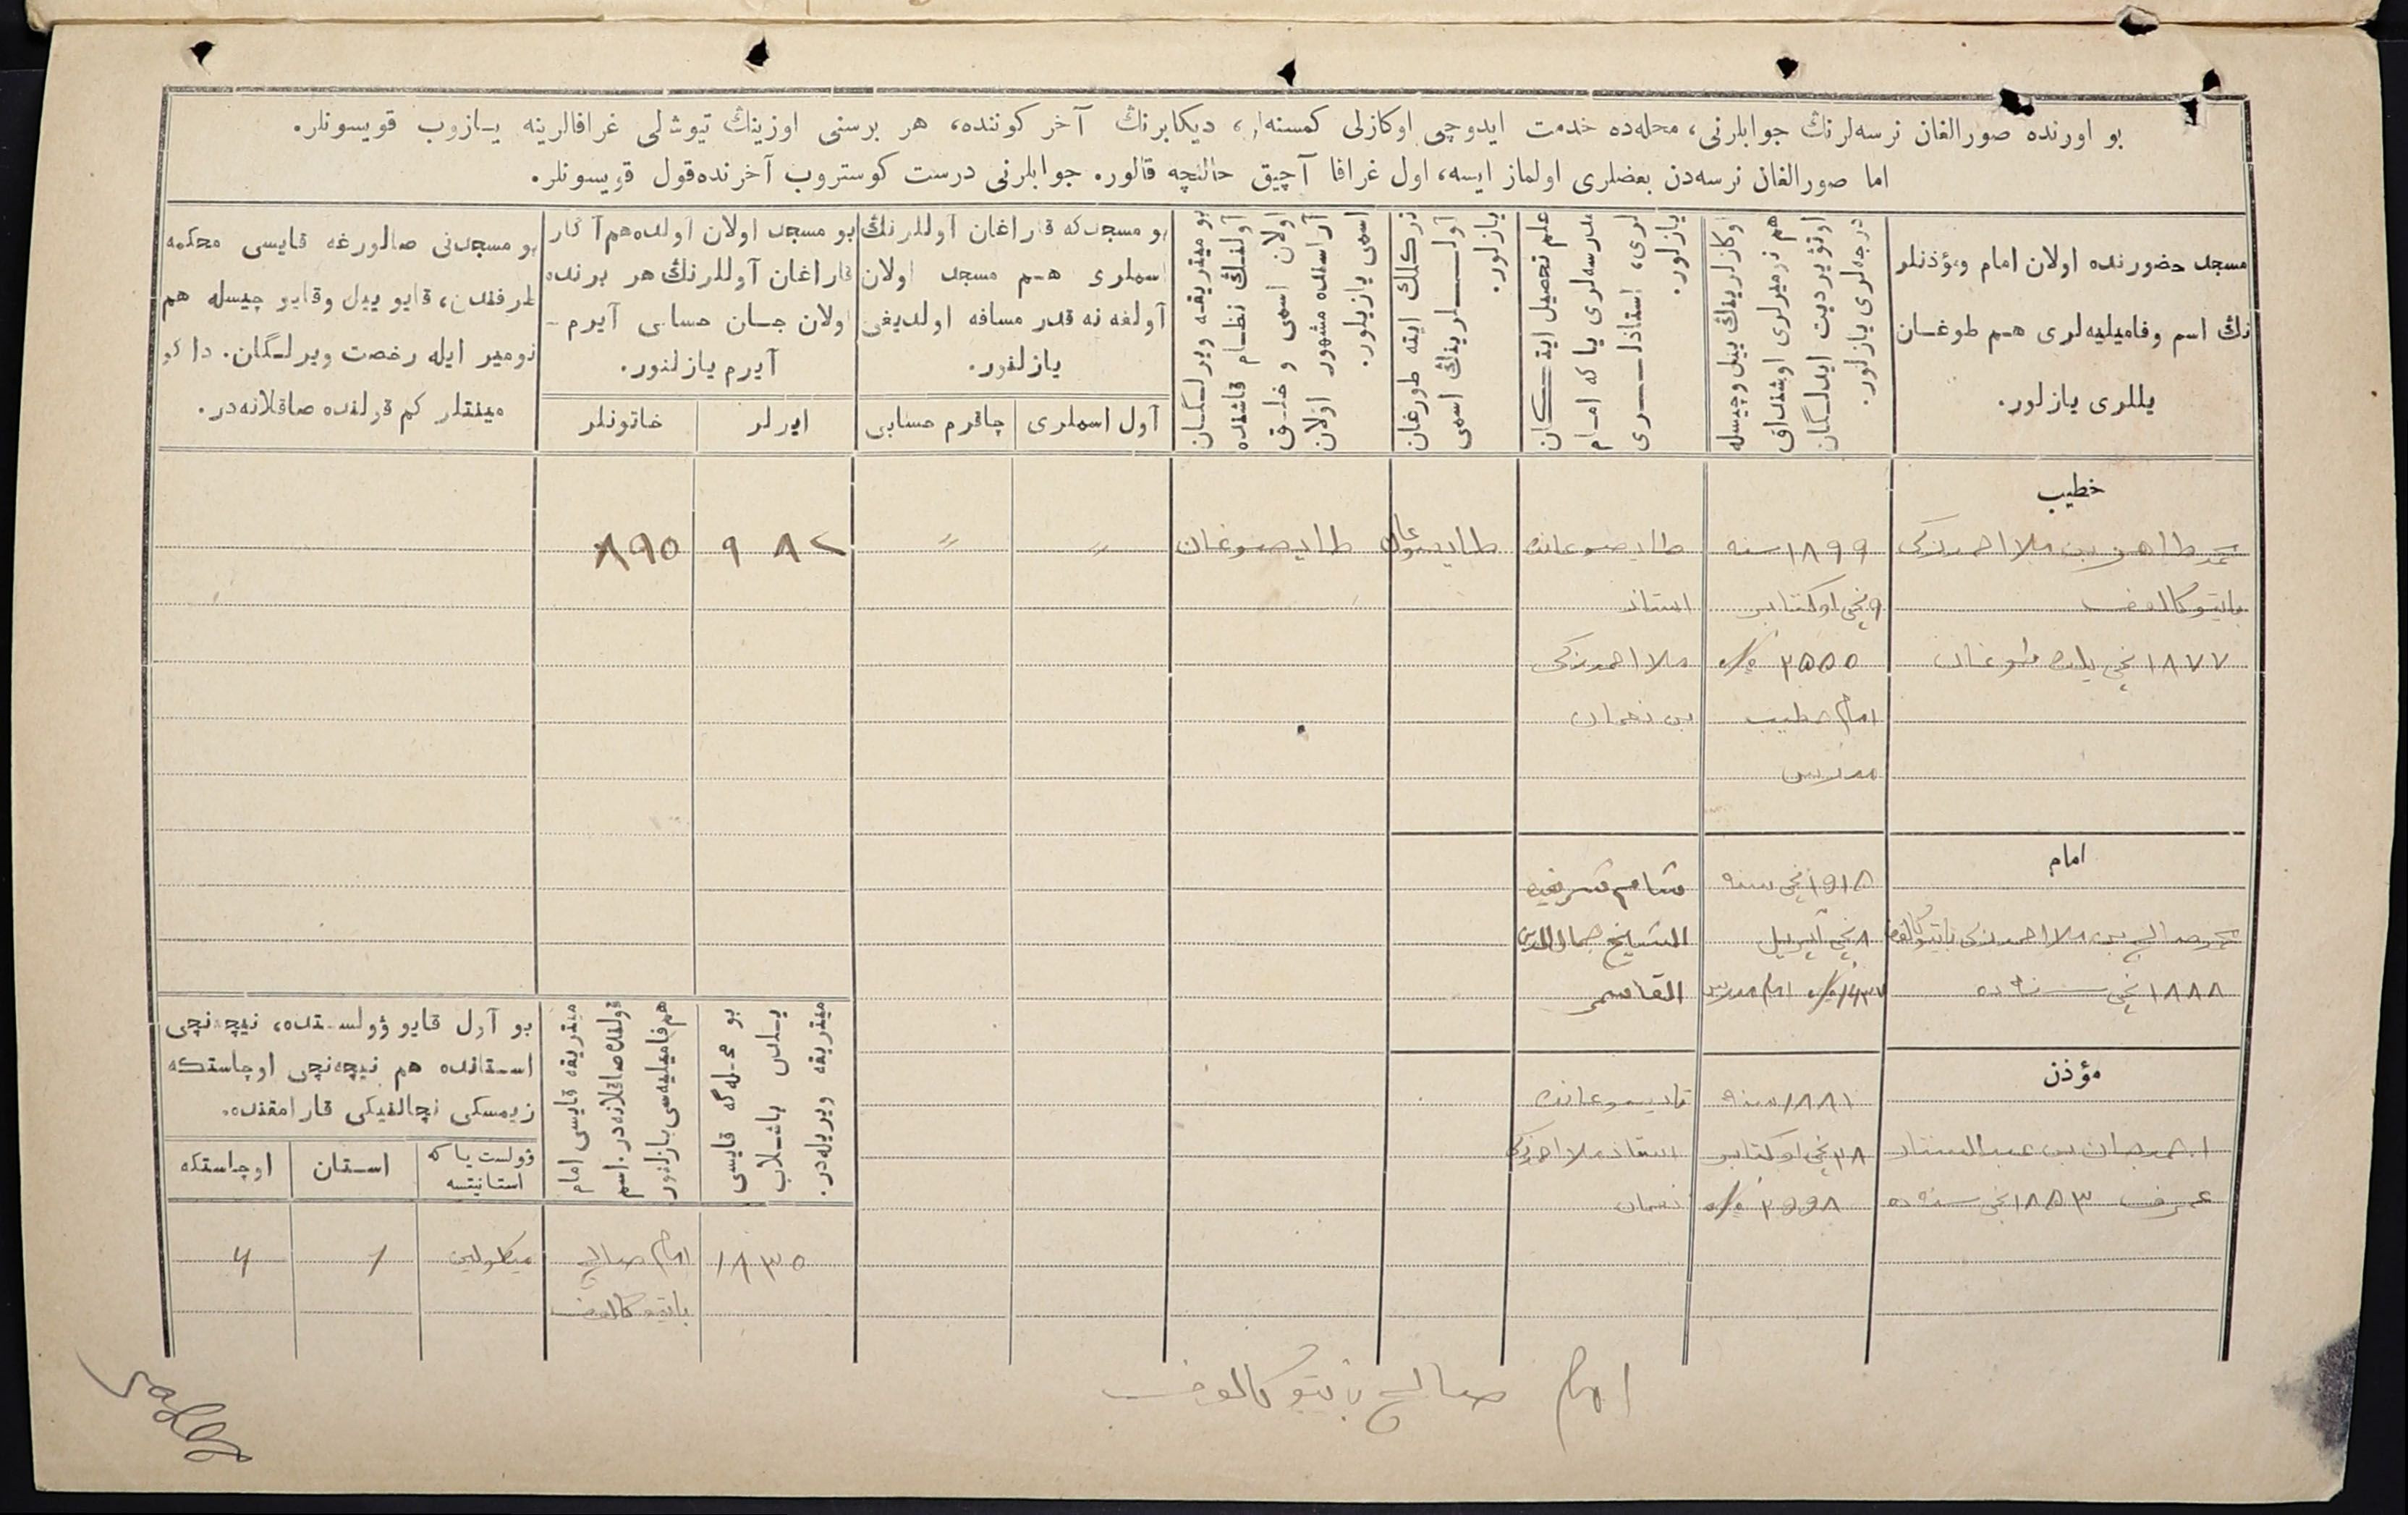 بو اورنده صورالغان نرسه‌لرنڭ جوابلرنی، محله‌ده خدمت ایدوچی اوکازلی کمسنه‌لر، دیکابرنڭ آخر کوننده، هر برسنی اوزینڭ تیوشلی غرافالرینه یازوب قویسونلر.
اما صورالغان نرسه‌دن بعضلری اولماز ایسه، اول غرافا آچیق حالنچه قالور. جوابلرنی درست کوستروب آخرنده قول قویسونلر.
مسجد حضورنده اولان امام ومؤذنلر
نڭ اسم وفامیلیه‌لری هم طوغان
یللری یازلور.
اوکازلرینڭ ییل وچیسله
هم نومیرلری اوشنداق
اوتوٴیردیت ایدلگان
درجه‌لری یازلور.
علم تحصیل ایتکان
مدرسه‌لری یا که امام
لری، استاذلری
یازلور.
نرکلك ایته طورغان
آوللرینڭ اسمی
یازلور.
بو میتریقه ویرلگان
آولنڭ نظام قاشنده
اولان اسمی و خلق
آراسنده مشهور اولان
اسمی یازیلور.
بو مسجدکه قاراغان آوللرنڭ
اسملری هم مسجد اولان
آولغه نه قدر مسافه اولدیغی
یازلنور.
آول اسملری
چاقرم حسابی
بو مسجد اولان آولده هم آڭار
قاراغان آوللرنڭ هر برنده
اولان جان حسابی آیرم-
آیرم یازلنور.
ایرلر
خاتونلر
بو مسجدنی صالورغه قایسی محکمه
طرفندن، قایو ییل وقایو چیسله هم
نومیر ایله رخصت ویرلگان. داکو
مینتلر کم قولنده صاقلانه‌در.
خطیب
محمد طاهر بن ملا احمد زکی
بایتوکالوف
۱۸۷۷ نچی یلده طوغان
۱۸۹۹ سنه
۹ نچی اوکتابر
امام خطیب
مدرس
استاذ
ملا احمد زکی
بن نعمان
طایصوغان
〃
〃
۹۸۲
۸۹۵
امام
محمد صالح بن ملا احمد زکی بایتوکالوف
۱۸۸۸ نچی سنه ده
۱۹۱۸ نچی سنه
۸ نچی آپریل
شام شریفده
الشیخ جمال الدین
القاسمی
مؤذن
احمدجان بن عبد الستار
۱۸۵۳ نچی سنه ده
۱۸۸۱ سنه
۲۸ نچی اوکتابر
استاذ ملا احمد زکی
نعمان
بو محله‌گه قایسی
یلدن باشلاب
میتریقه ویریله‌در.
میتریقه قایسی امام
قولنده صاقلانه‌در. اسم
هم فامیلیه‌سی یازلنور
بو آول قایو وولستده، نیچه‌نچی
استانده هم نیچه‌نچی اوچاستکه
زیمسکی نچالنیکی قارامقنده.
وولست یا که
استانیتسه
استان
اوچاستکه
۱۸۳۵
امام صالح
بایتوکالوف
میکولین
۱
۴
امام صالح بایتوکالوف